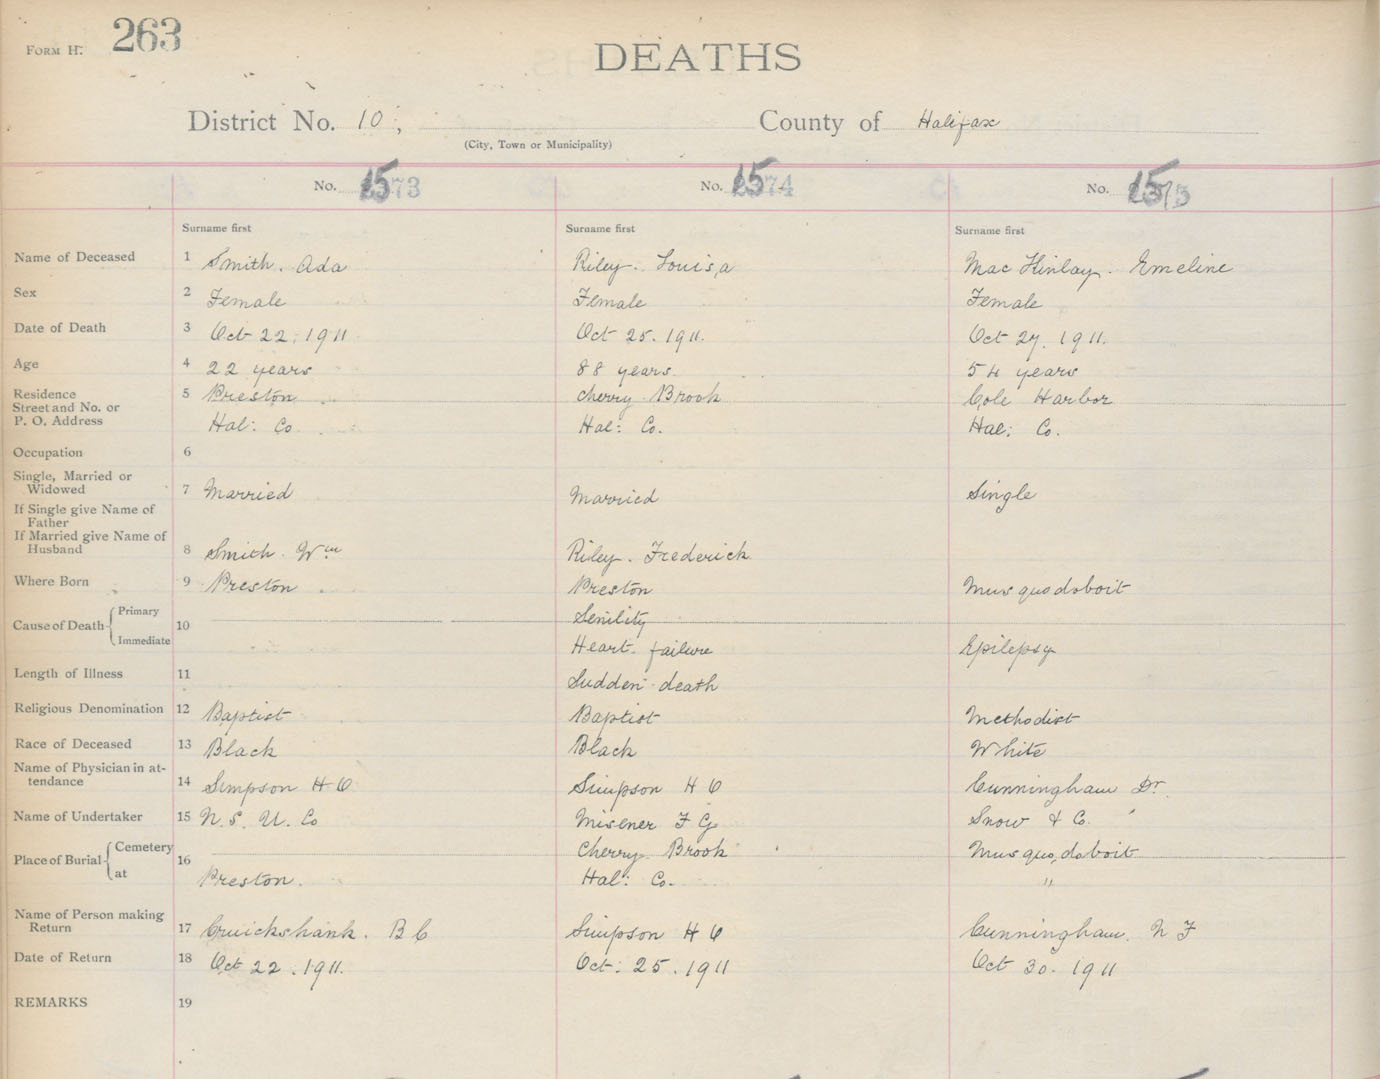 Form H. 263
DEATHS
District No. 10, County of Halifax
(City, Town or Municipality)
No. 1573 No. 1574 No. 1575
Surname first Surname first Surname first
Name of Deceased 1 Smith. Ada Riley. Louisa Mac Kinlay. Emeline
Sex 2 Female Female Female
Date of Death 3 Oct 22. 1911 Oct 25. 1911. Oct 27. 1911.
Age 4 22 years 88 years. 54 years
Residence 5 Preston Cherry Brook Cole Harbor
Street and No. or
P. O. Address Hal: Co Hal: Co. Hal: Co.
Occupation 6
Single, Married or
Widowed 7 Married Married Single
If Single give Name of
Father
If Married give Name of
Husband 8 Smith. Wm Riley. Frederick
Where Born 9 Preston Preston Musquodoboit
Cause of Death { Primary 10 Senility
Immediate Heart failure Epilepsy
Length of Illness 11 Sudden death
Religious Denomination 12 Baptist Baptist Methodist
Race of Deceased 13 Black Black White
Name of Physician in at-
tendance 14 Simpson H O Simpson H O Cunningham Dr.
Name of Undertaker 15 N. S. U. Co Misener F G Snow & Co.
Place of Burial { Cemetery 16 Cherry Brook Musquodoboit
at Preston. Hal: Co. "
Name of Person making
Return 17 Cruickshank. B C Simpson H O Cunningham. N F
Date of Return 18 Oct 22. 1911. Oct: 25. 1911 Oct 30. 1911
REMARKS 19